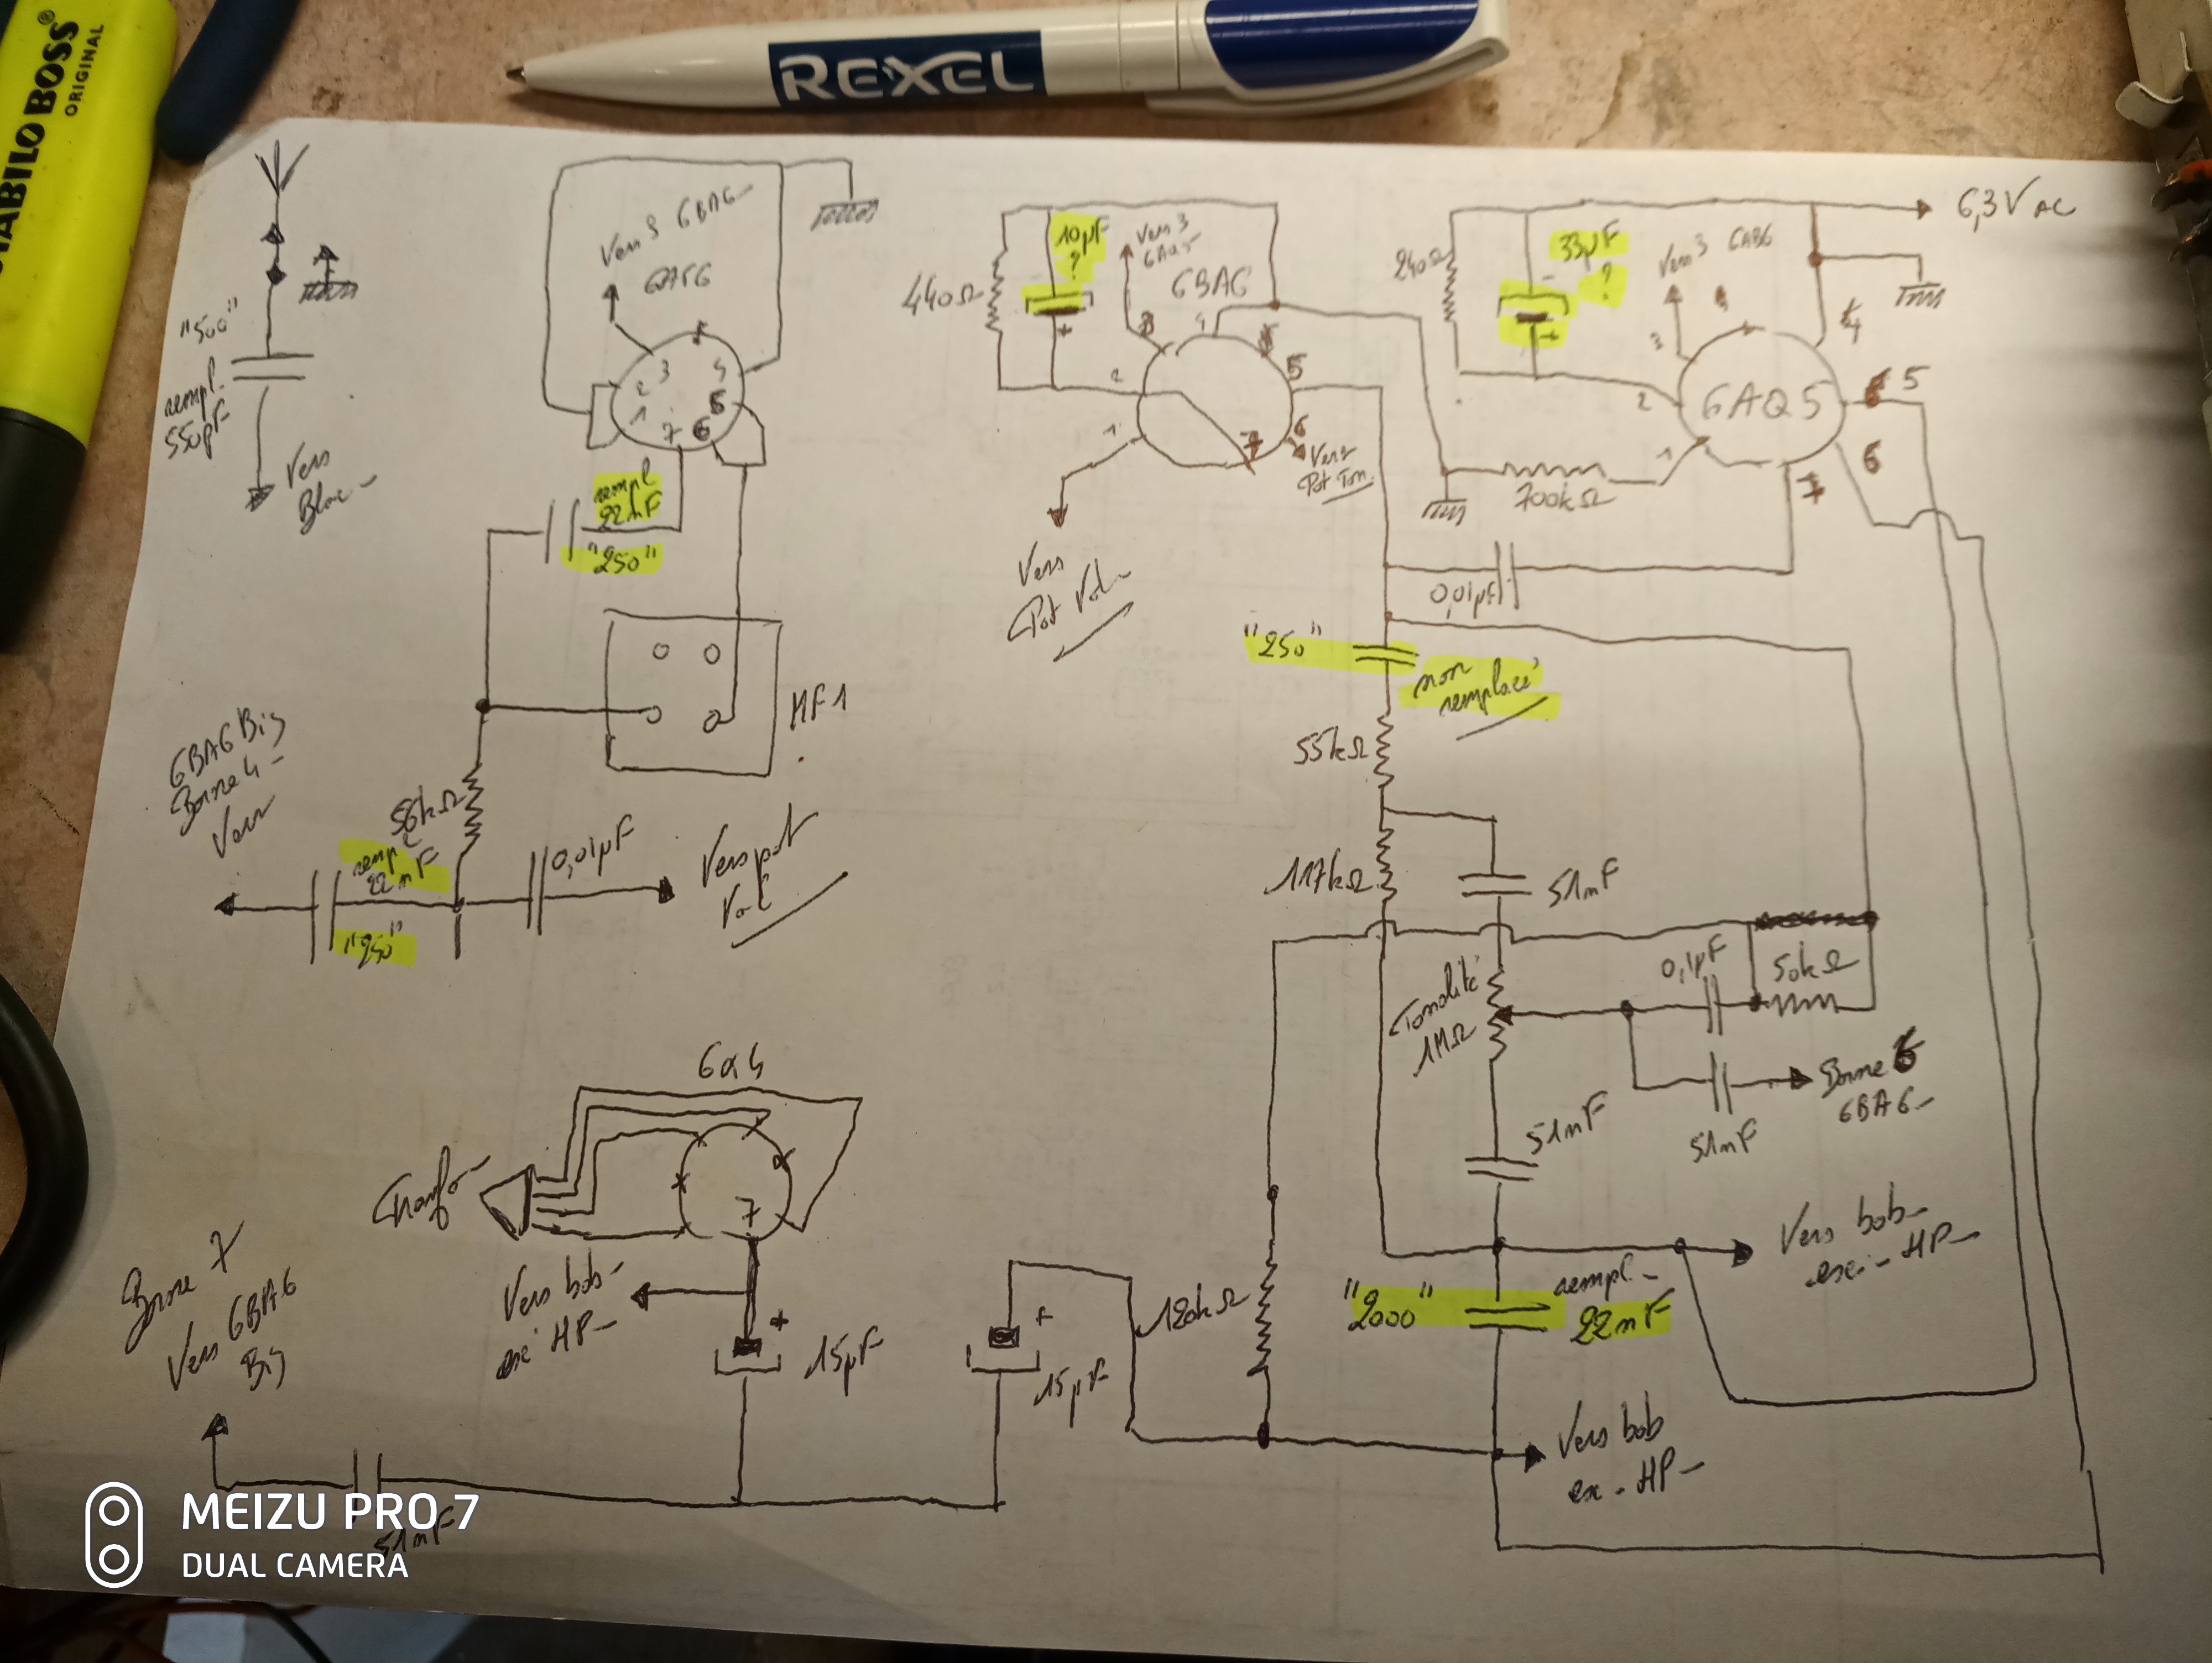 STABILO BOSS®
ORIGINAL
REXEL
"500"
rempl.
550pF
Vers
Bloc
Vers 3 6BA6
3
2
1
7
6
5
rempl
22nF
"250"
MF1
6BA6 Big
Borne 4
Vers
56kΩ
rempl
22nF
"250"
0,01µF
Vers pot
Vol
440Ω
10µF
?
+
Vers 3
6AQ5
6BA6
1
2
1
5
6
7
Vers
Pot Ton.
Vers
Pot Vol
6,3V AC
240Ω
33µF
?
-
+
Vers 3
3
4
5
6
7
1
2
6AQ5
700kΩ
0,01µF
"250"
non
remplacé
55kΩ
117kΩ
51nF
Tonalité
1MΩ
0,1µF
50kΩ
Borne 6
6BA6
51nF
51nF
Vers bob
exi. HP
"2000"
rempl.
22nF
120kΩ
Vers bob
ex. HP
Transfo
7
Vers bob
exi HP
+
15µF
+
15µF
Borne 7
Vers 6BA6
Big
51nF
MEIZU PRO 7
DUAL CAMERA